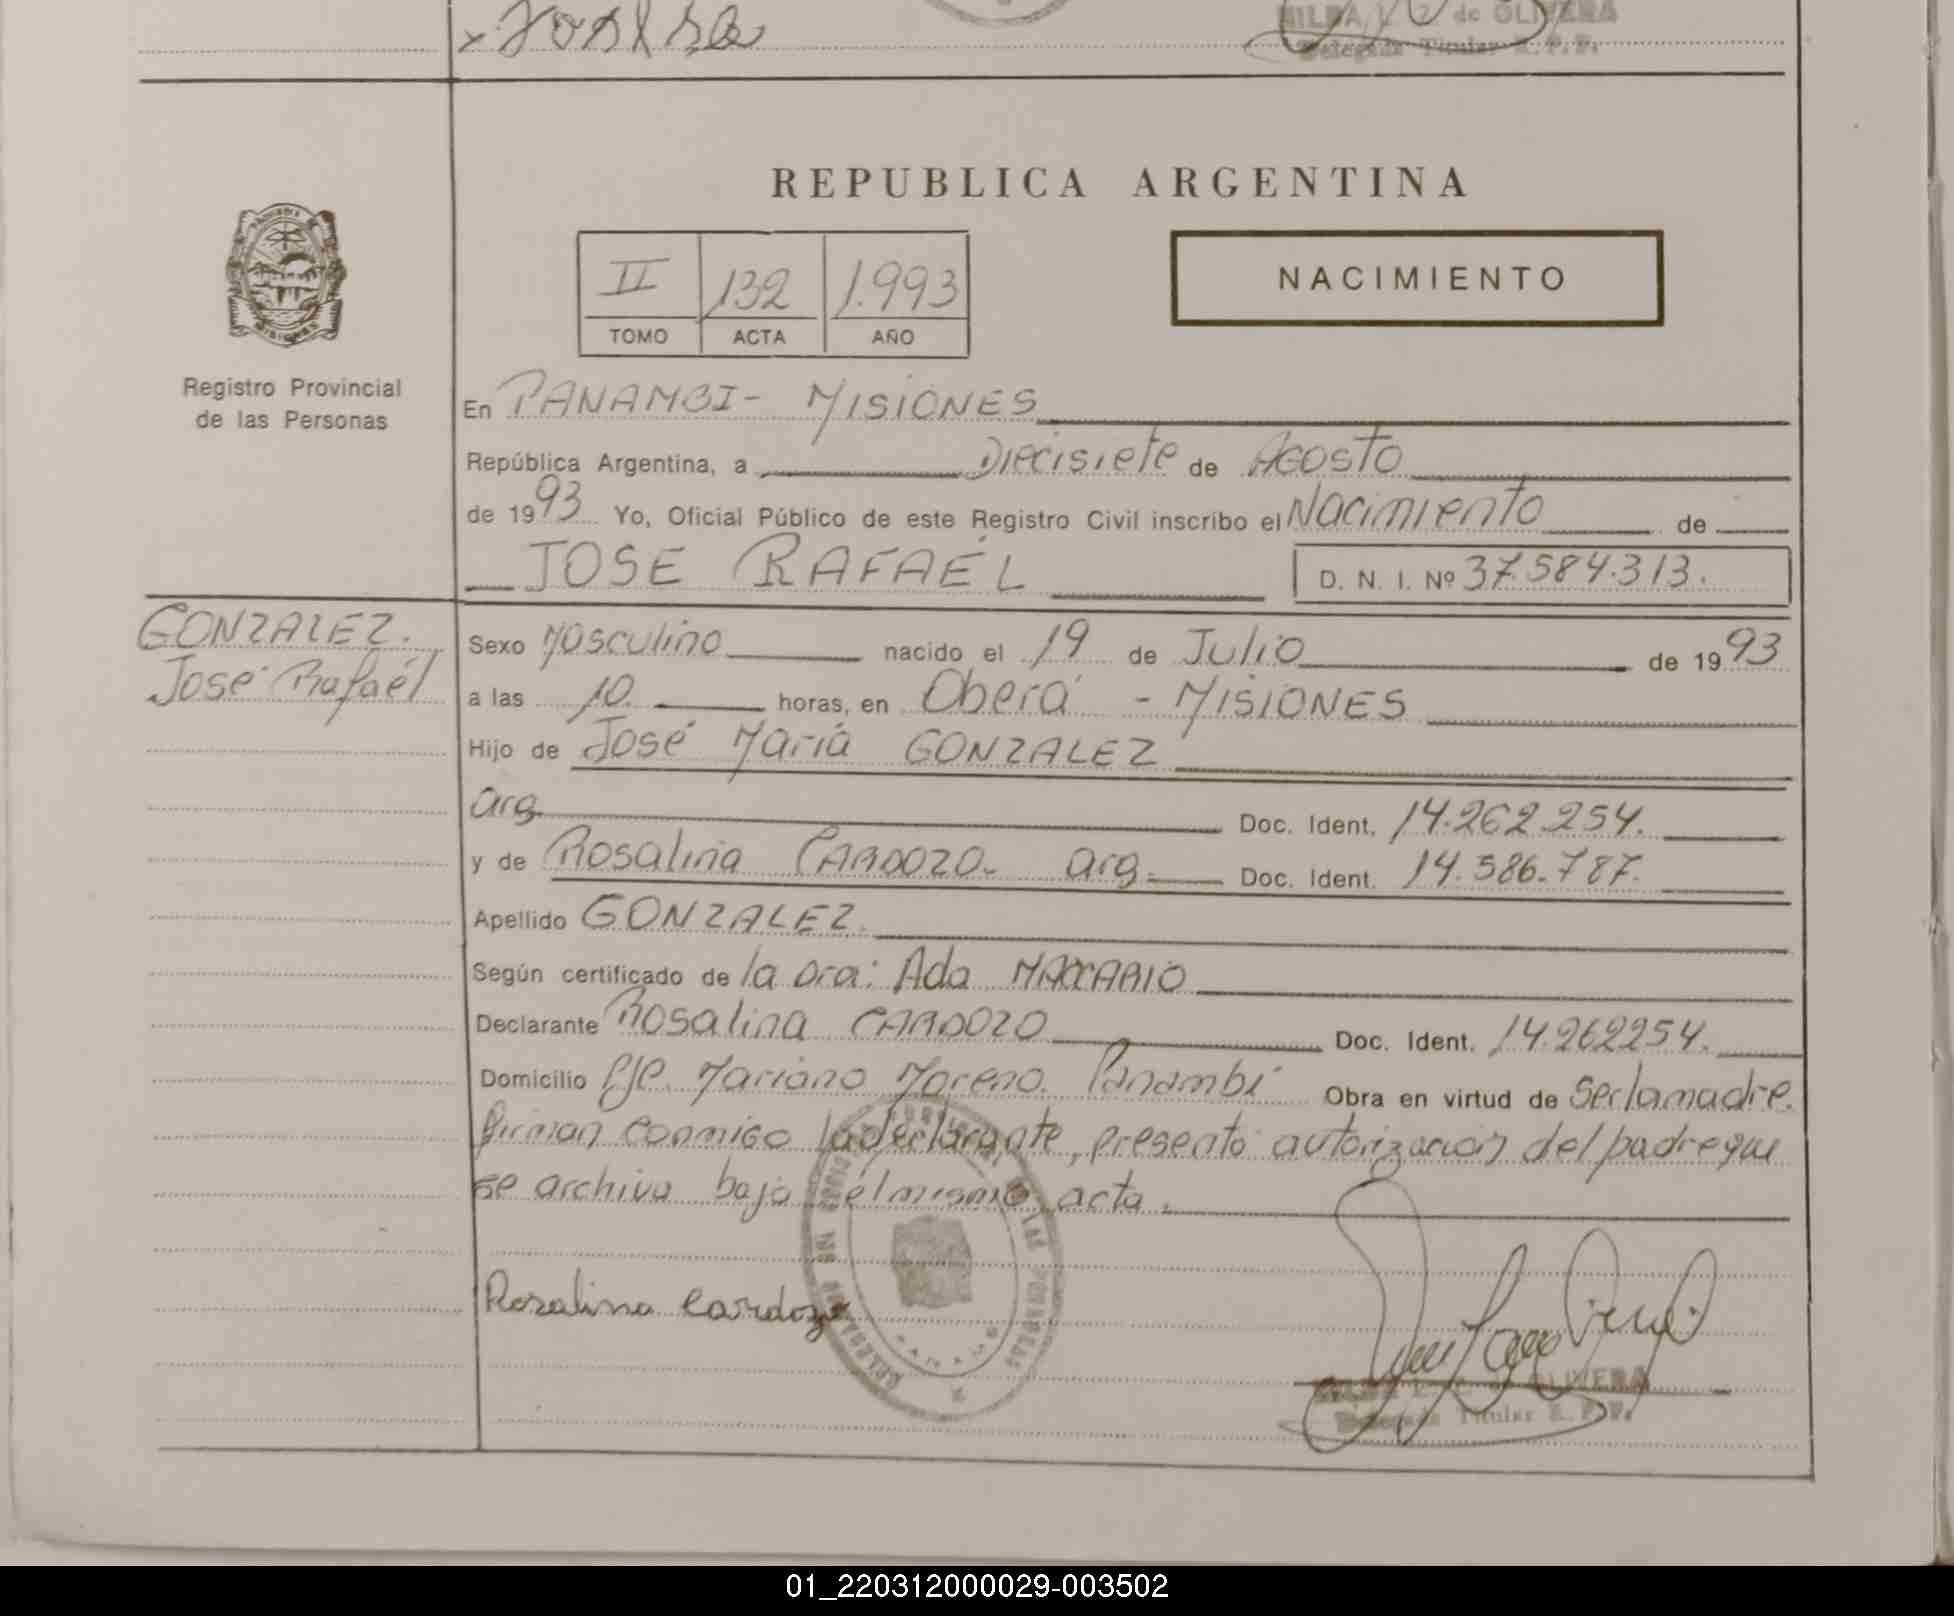 HILDA L. Z. de OLIVERA
Delegada Titular R. P. P.
REPUBLICA ARGENTINA
II 132 1.993
TOMO ACTA AÑO
NACIMIENTO
MISIONES
Registro Provincial
de las Personas
En PANAMBI - MISIONES
República Argentina, a Diecisiete de AGOSTO
de 1993 Yo, Oficial Público de este Registro Civil inscribo el Nacimiento de
JOSE RAFAÉL D. N. I. Nº 37.584.313.
GONZALEZ.
José Rafaél
Sexo Masculino nacido el 19 de Julio de 1993
a las 10. horas, en Oberá - MISIONES
Hijo de José Mariá GONZALEZ
arg. Doc. Ident. 14.262.254.
y de Rosalina CARDOZO. arg. Doc. Ident. 14.586.787.
Apellido GONZALEZ.
Según certificado de la Dra: Ada MACCARIO
Declarante Rosalina CARDOZO Doc. Ident. 14.262254.
Domicilio Pje. Mariano Moreno. Panambí Obra en virtud de ser la madre.
firman conmigo la declarante, presentó autorización del padre que
se archiva bajo él mismo acta.
Rosalina Cardozo
HILDA L. Z. de OLIVERA
Delegada Titular R. P. P.
01_220312000029-003502